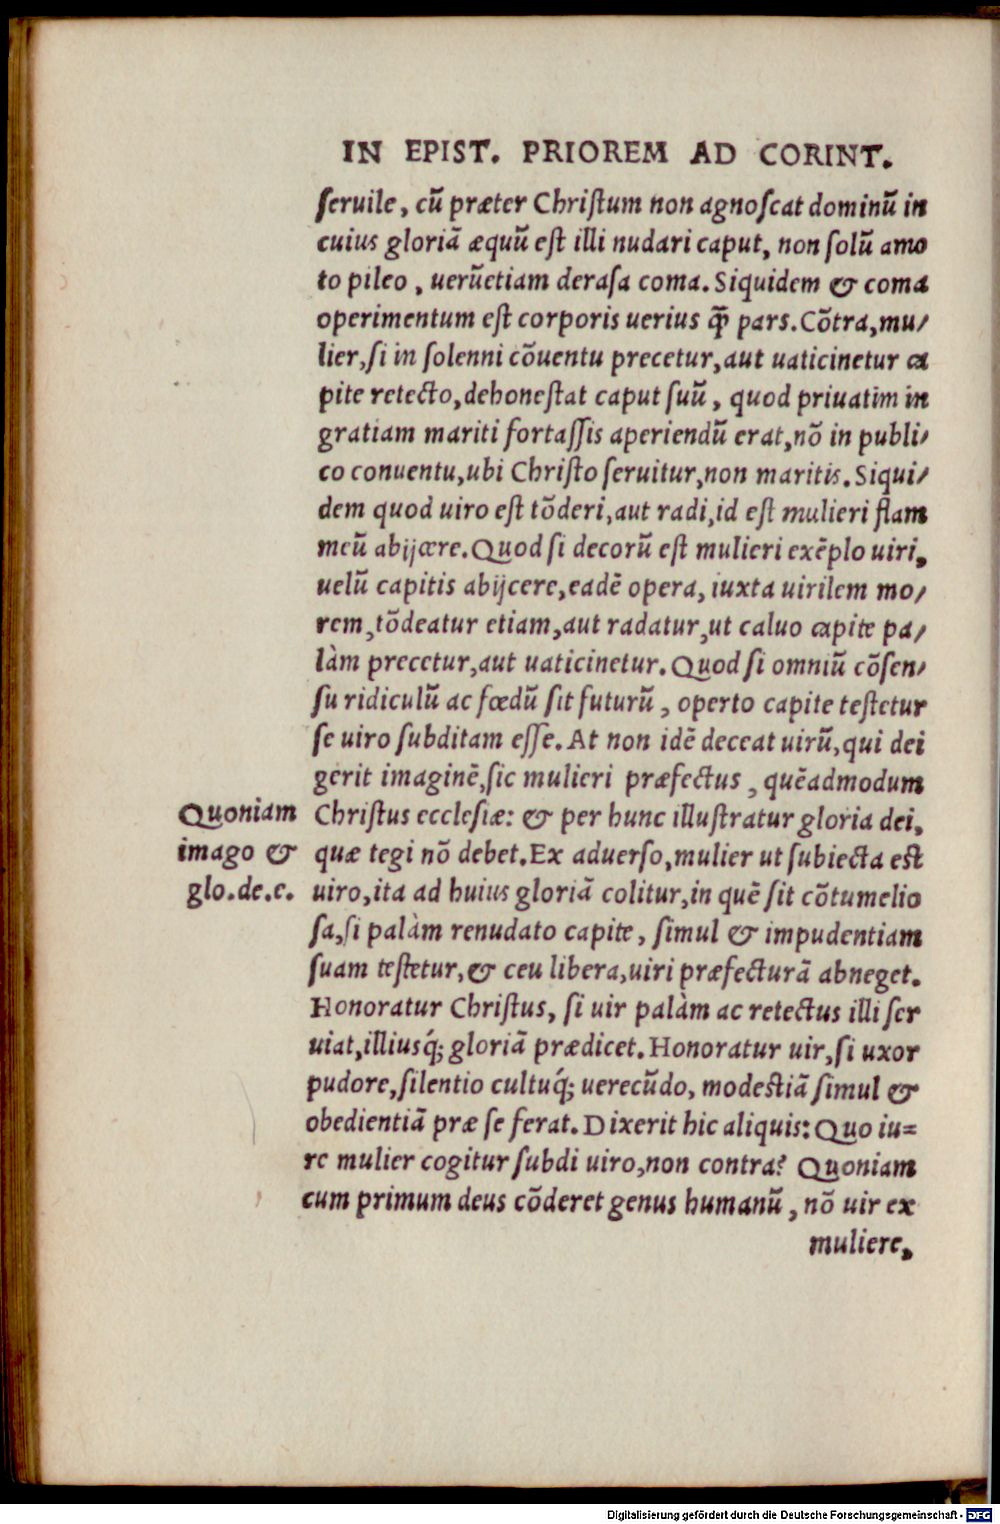 IN EPIST. PRIOREM AD CORINT.
ſeruile, cū præter Chriſtum non agnoſcat dominū in
cuius gloriā æquū eſt illi nudari caput, non ſolū amo
to pileo, uerūetiam deraſa coma. Siquidem & coma
operimentum eſt corporis uerius q̃ pars. Cōtra, mu/
lier, ſi in ſolenni cōuentu precetur, aut uaticinetur ca
pite retecto, dehoneſtat caput ſuū, quod priuatim in
gratiam mariti fortaſſis aperiendū erat, nō in publi/
co conuentu, ubi Chriſto ſeruitur, non maritis. Siqui/
dem quod uiro eſt tōderi, aut radi, id eſt mulieri flam
meū abijcere. Quod ſi decorū eſt mulieri exēplo uiri,
uelū capitis abijcere, eadē opera, iuxta uirilem mo/
rem, tōdeatur etiam, aut radatur, ut caluo capite pa/
làm precetur, aut uaticinetur. Quod ſi omniū cōſen/
ſu ridiculū ac fœdū ſit futurū, operto capite teſtetur
ſe uiro ſubditam eſſe. At non idē deceat uirū, qui dei
gerit imaginē, ſic mulieri præfectus, quēadmodum
Quoniam
imago &
glo.de.e.
Chriſtus eccleſiæ: & per hunc illuſtratur gloria dei,
quæ tegi nō debet. Ex aduerſo, mulier ut ſubiecta eſt
uiro, ita ad huius gloriā colitur, in quē ſit cōtumelio
ſa, ſi palàm renudato capite, ſimul & impudentiam
ſuam teſtetur, & ceu libera, uiri præfecturā abneget.
Honoratur Chriſtus, ſi uir palàm ac retectus illi ſer
uiat, illiusq́; gloriā prædicet. Honoratur uir, ſi uxor
pudore, ſilentio cultuq́; uerecūdo, modeſtiā ſimul &
obedientiā præ ſe ferat. Dixerit hic aliquis: Quo iu=
re mulier cogitur ſubdi uiro, non contra? Quoniam
cum primum deus cōderet genus humanū, nō uir ex
muliere,
Digitalisierung gefördert durch die Deutsche Forschungsgemeinschaft - DFG